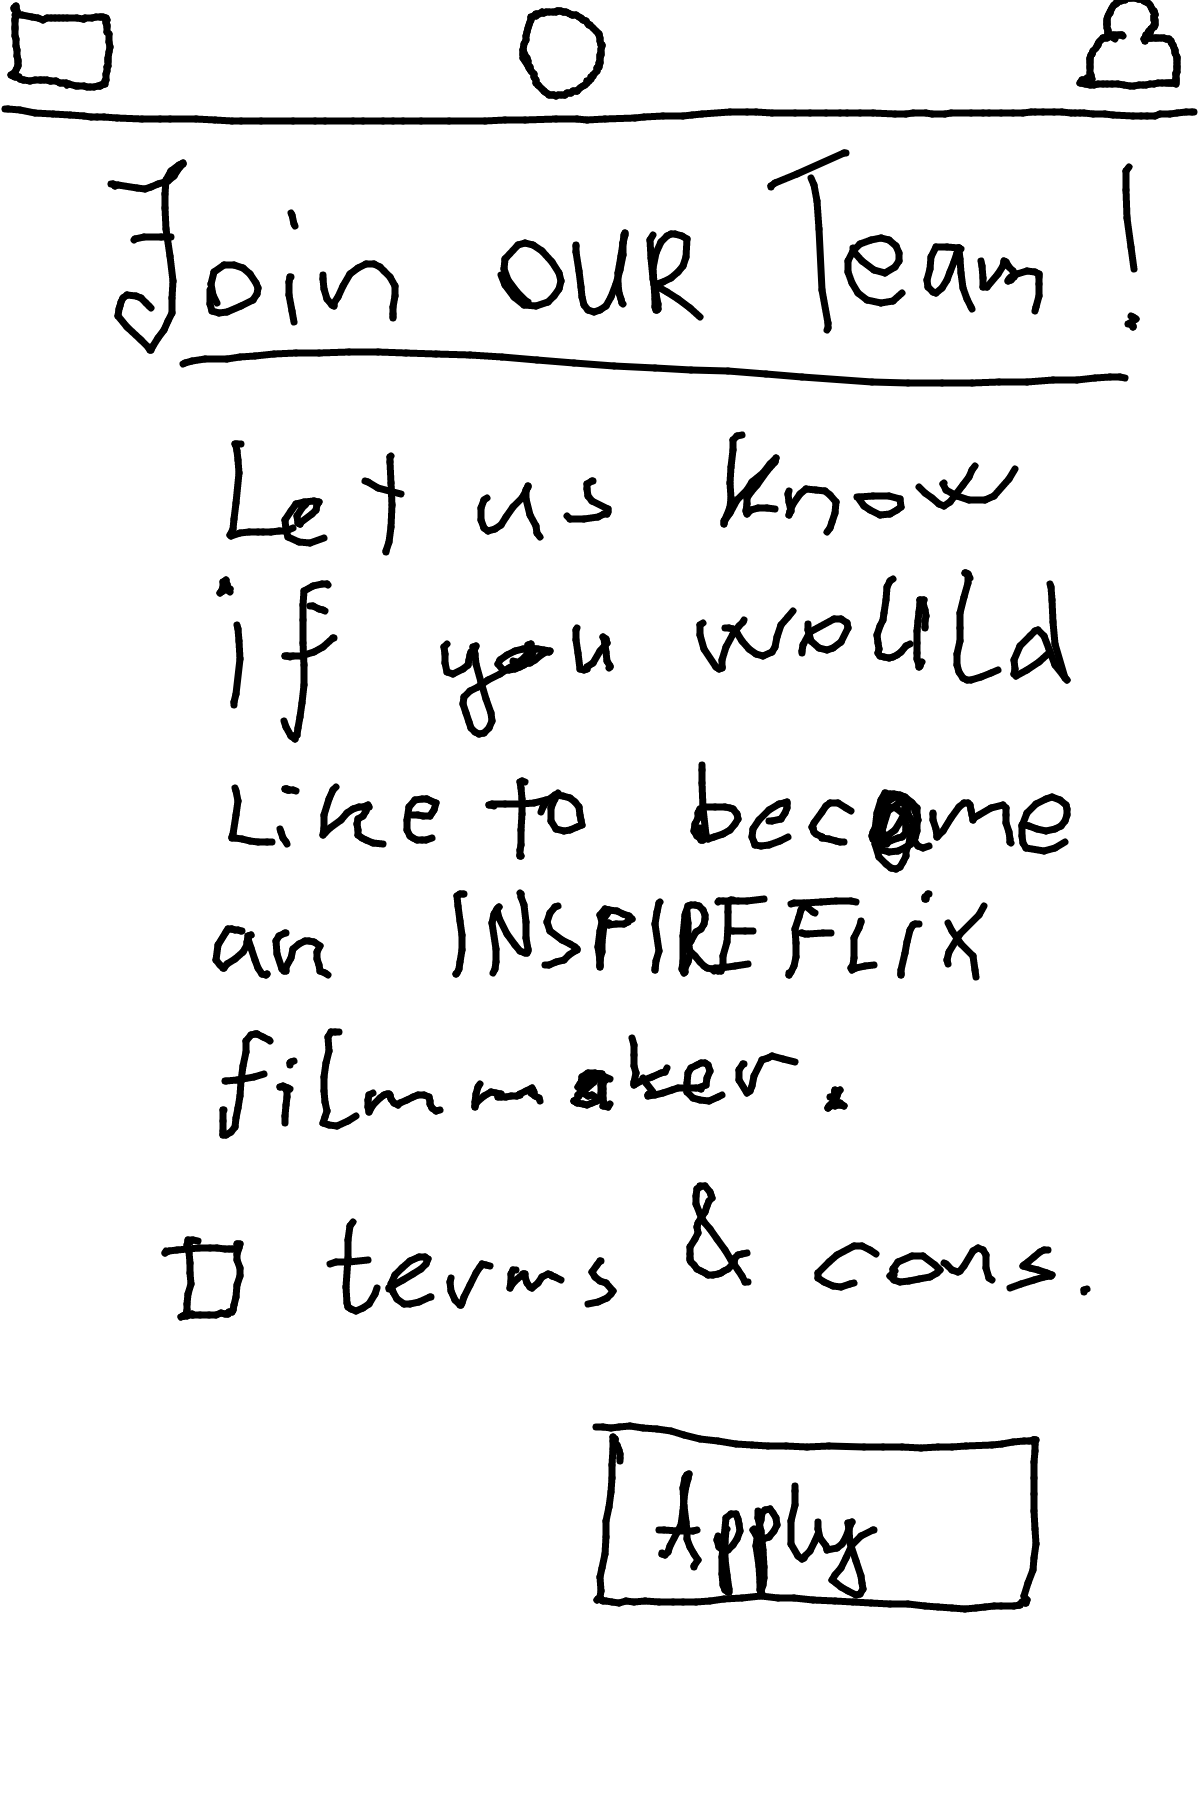 Join OUR Team!
Let us know
if you would
Like to become
an INSPIREFLiX
filmmaker.
terms & cons.
Apply